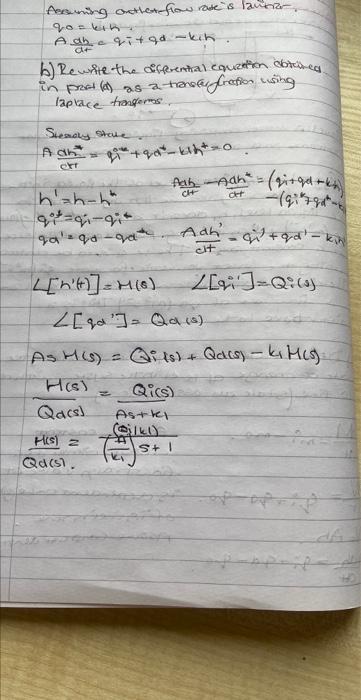 Assuming outlet flow rate is laminar,
q0 = k1h.
A dh/dt = qi + qd - k1h.
b) Rewrite the differential equation obtained
in part (a) as a transfer function using
laplace transforms.
Steady state.
A dh*/dt = qi* + qd* - k1h* = 0
A dh/dt - A dh*/dt = (qi + qd + k1h)
- (qi* + qd* -
h' = h - h*
qi' = qi - qi*
qd' = qd - qd* A dh'/dt = qi' + qd' - k1h
L[h'(t)] = H(s) L[qi'] = Qi(s)
L[qd'] = Qd(s)
As H(s) = Qi(s) + Qd(s) - k1 H(s)
H(s)/Qd(s) = Qi(s)/As + k1
H(s)/Qd(s). = (Qi/k1)/(A/k1) s + 1